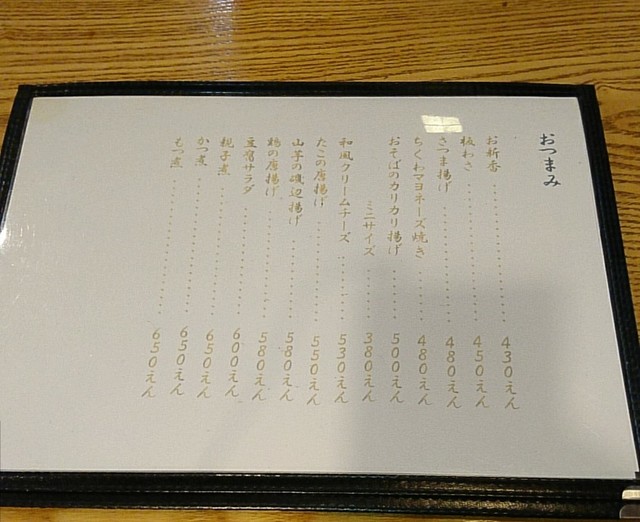 おつまみ
お新香 430えん
板わさ 450えん
さつま揚げ 480えん
ちくわマヨネーズ焼き 480えん
おそばのカリカリ揚げ 500えん
ミニサイズ 380えん
和風クリームチーズ 530えん
たこの唐揚げ 550えん
山芋の磯辺揚げ 580えん
鶏の唐揚げ 580えん
豆腐サラダ 600えん
親子煮 650えん
かつ煮 650えん
もつ煮 650えん